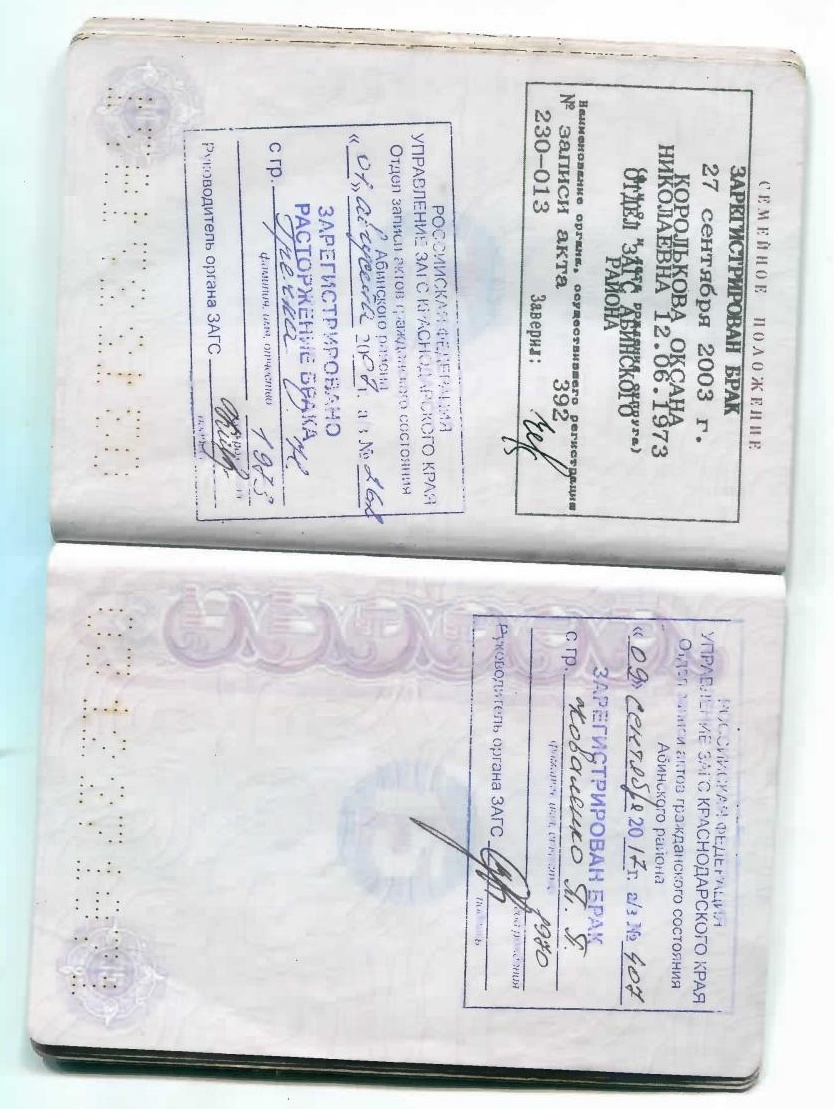 СЕМЕЙНОЕ ПОЛОЖЕНИЕ
ЗАРЕГИСТРИРОВАН БРАК
27 сентября 2003 г.
КОРОЛЬКОВА ОКСАНА
НИКОЛАЕВНА 12.06.1973
ОТДЕЛ ЗАГС АБИНСКОГО
РАЙОНА
Наименование органа, осуществившего регистрацию
№ записи акта 392
230-013 Заверил:
РОССИЙСКАЯ ФЕДЕРАЦИЯ
УПРАВЛЕНИЕ ЗАГС КРАСНОДАРСКОГО КРАЯ
Отдел записи актов гражданского состояния
Абинского района
«01» августа 2007 г. а/з № 262
ЗАРЕГИСТРИРОВАНО
РАСТОРЖЕНИЕ БРАКА
с гр. О. Н.
фамилия, имя, отчество
1973
Руководитель органа ЗАГС
РОССИЙСКАЯ ФЕДЕРАЦИЯ
УПРАВЛЕНИЕ ЗАГС КРАСНОДАРСКОГО КРАЯ
Отдел записи актов гражданского состояния
Абинского района
«09» сентября 2017 г. а/з № 407
ЗАРЕГИСТРИРОВАН БРАК
с гр. Коваленко
фамилия, имя, отчество
1980
год рождения
Руководитель органа ЗАГС
подпись